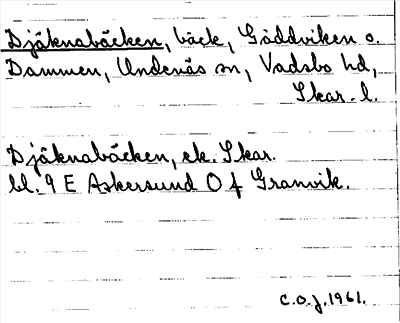 Djäknabäcken, bäck, Gäddviken o.
Dammen, Undenäs sn, Vadsbo hd,
Skar. l.
Djäknabäcken, ek. Skar.
bl. 9 E Askersund O f Granvik.
C.O.J. 1961.